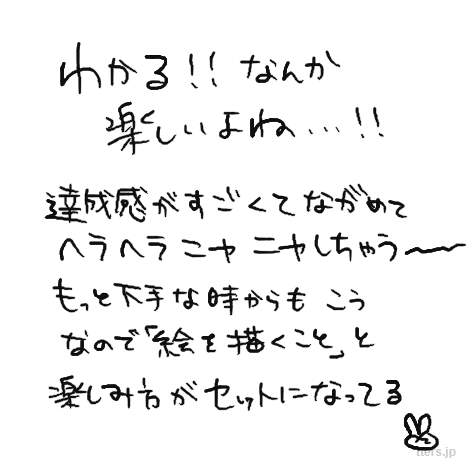 わかる!!なんか
楽しいよね…!!
達成感がすごくてながめて
ヘラヘラニヤニヤしちゃう〜
もっと下手な時からもこう
なので「絵を描くこと」と
楽しみ方がセットになってる
tters.jp